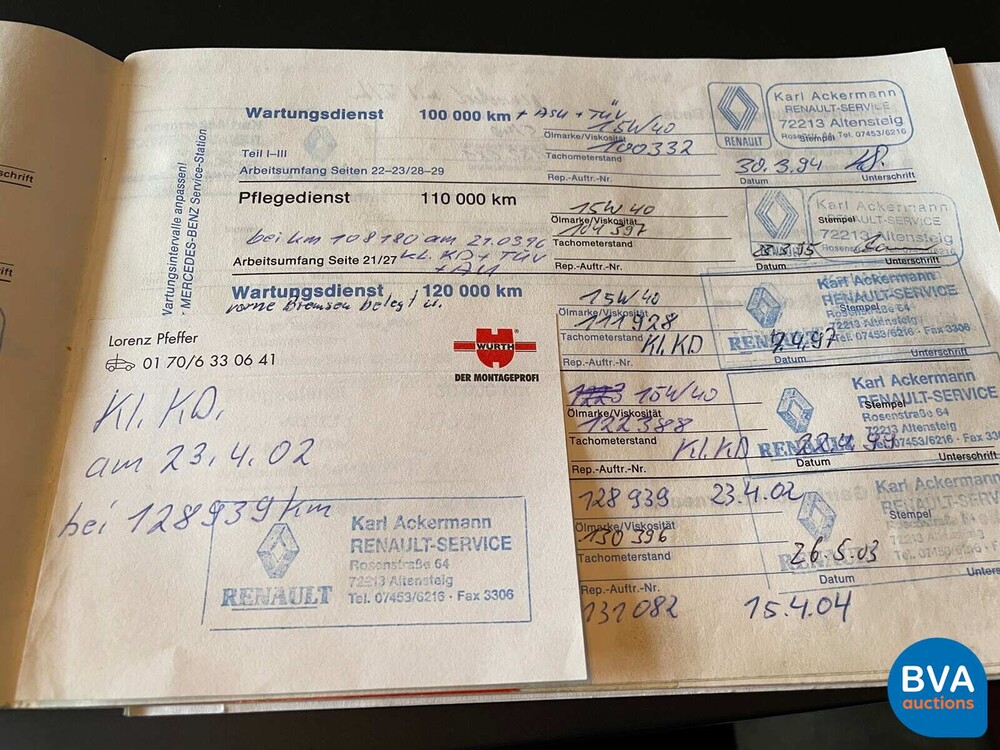 schrift
Wartungsintervalle anpassen!
MERCEDES-BENZ Service-Station
Wartungsdienst 100 000 km + ASU + TÜV
Teil I–III
Arbeitsumfang Seiten 22–23/28–29
15W40
Ölmarke/Viskosität
100332
Tachometerstand
Rep.-Auftr.-Nr.
RENAULT
Karl Ackermann
RENAULT-SERVICE
72213 Altensteig
Rosenstr. 64 Tel. 07453/6216
Stempel
30.3.94
Datum
Unterschrift
Pflegedienst 110 000 km
bei km 108180 am 21.03.96
Arbeitsumfang Seite 21/27 Kl. KD + TÜV
+ AU
15W40
Ölmarke/Viskosität
104397
Tachometerstand
Rep.-Auftr.-Nr.
Karl Ackermann
RENAULT-SERVICE
72213 Altensteig
Stempel
Datum
Unterschrift
Wartungsdienst 120 000 km
vorne Bremsen belegt
15W40
Ölmarke/Viskosität
111928
Tachometerstand
Kl. KD
Rep.-Auftr.-Nr.
RENAULT
Karl Ackermann
RENAULT-SERVICE
Rosenstraße 64
72213 Altensteig
Tel. 07453/6216 · Fax 3306
Stempel
7.4.97
Datum
Unterschrift
15W40
Ölmarke/Viskosität
122388
Tachometerstand
Kl. KD
Rep.-Auftr.-Nr.
RENAULT
Karl Ackermann
RENAULT-SERVICE
Rosenstraße 64
72213 Altensteig
Tel. 07453/6216 · Fax
Stempel
99
Datum
Unterschrift
128939 23.4.02
Ölmarke/Viskosität
130396
Tachometerstand
Rep.-Auftr.-Nr.
Karl Ackermann
Stempel
26.5.03
Datum
131082 15.4.04
Lorenz Pfeffer
01 70/6 33 06 41
WÜRTH
DER MONTAGEPROFI
Kl. KD.
am 23.4.02
bei 128939 km
RENAULT
Karl Ackermann
RENAULT-SERVICE
Rosenstraße 64
72213 Altensteig
Tel. 07453/6216 · Fax 3306
BVA
auctions